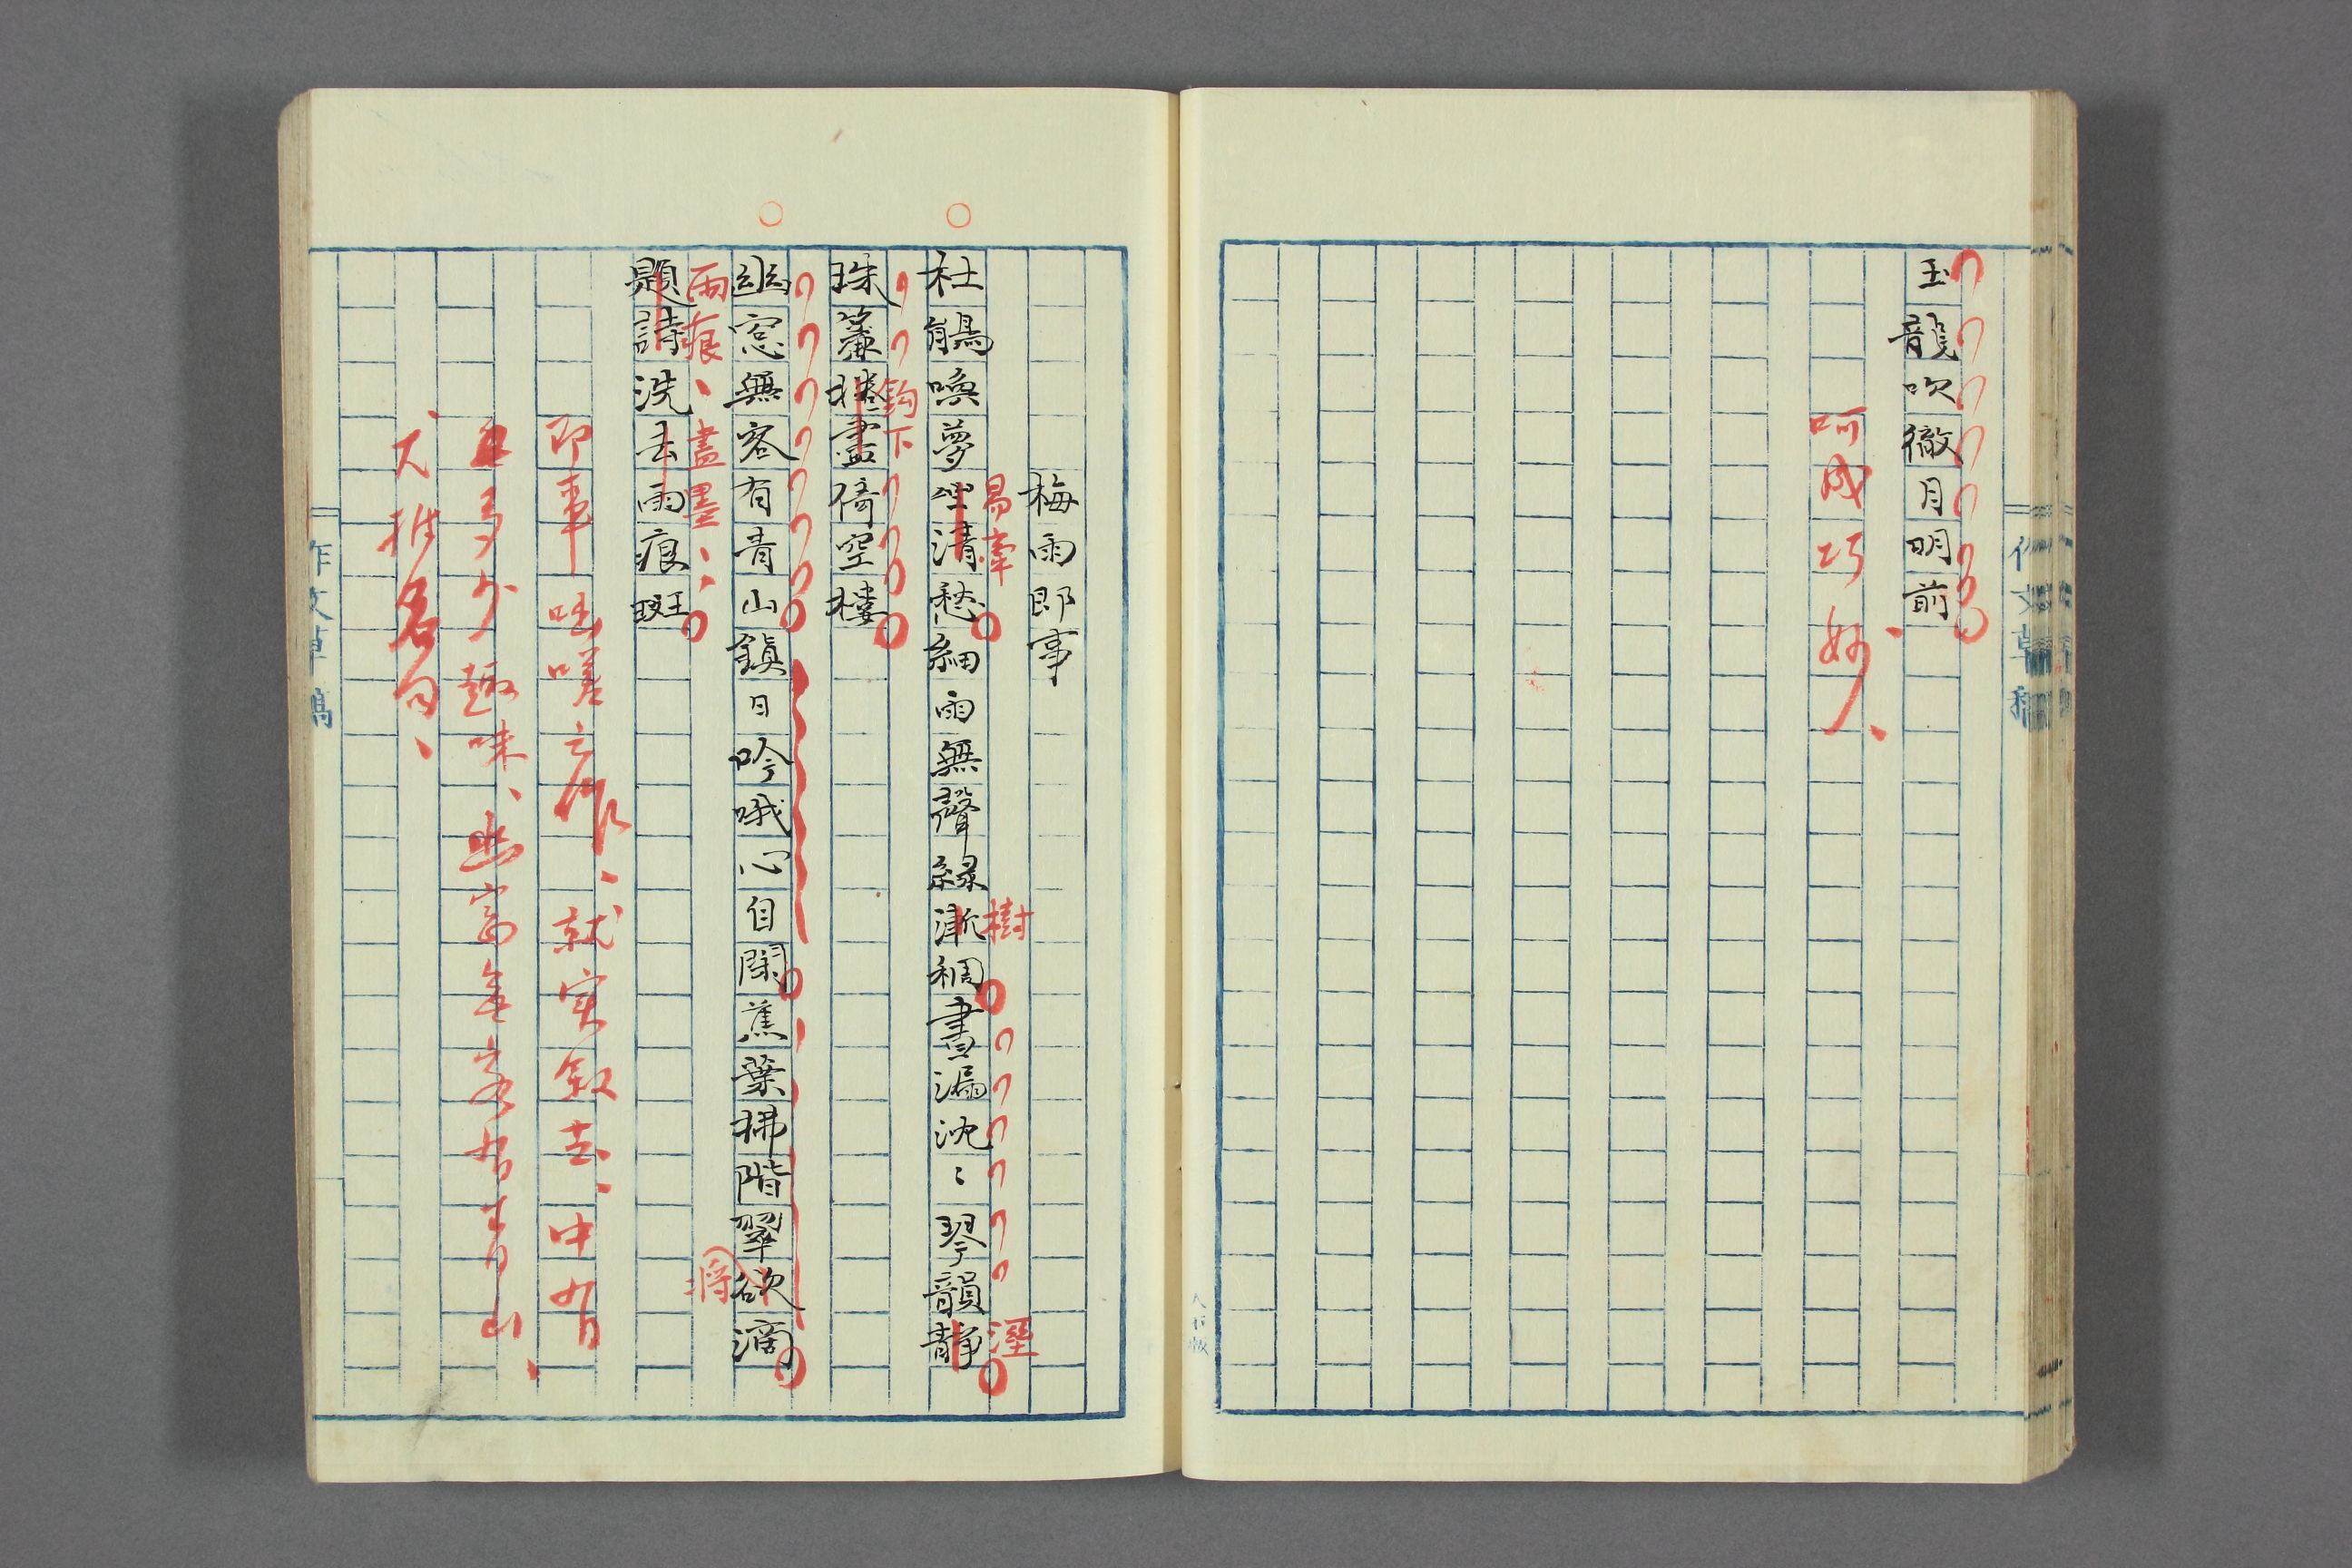 玉龍吹徹月明前
呵成巧妙
作文草稿
梅雨即事
易牽
樹
溼
杜鵑喚夢坐清愁細雨無聲緑漸稠晝漏沈〻琴韻靜
鈎下
珠簾捲盡倚空樓
幽窓無客有青山鎮日吟哦心自閑蕉葉拂階翠欲滴
雨痕
盡墨
將
題詩洗去雨痕斑
即事咄嗟之作、就実叙去、中有
多少趣味、幽窓無客有青山、
尤推名句、
作文草稿